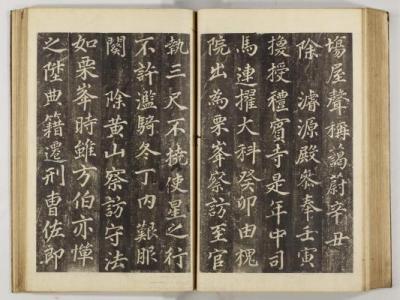 場屋聲稱藹蔚辛丑
除　濬源殿參奉壬寅
擾授禮賓寺是年中司
馬連擢大科癸卯由槐
院出為栗峯察訪至官
執三尺不撓使星之行
不許濫騎冬丁內艱服
闋　除黃山察訪守法
如栗峯時雖方伯亦憚
之陞典籍遷刑曹佐郎